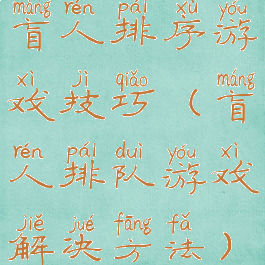 máng rén pái xù yóu
盲人排序游
xì jì qiǎo máng
戏技巧（盲
rén pái duì yóu xì
人排队游戏
jiě jué fāng fǎ
解决方法）